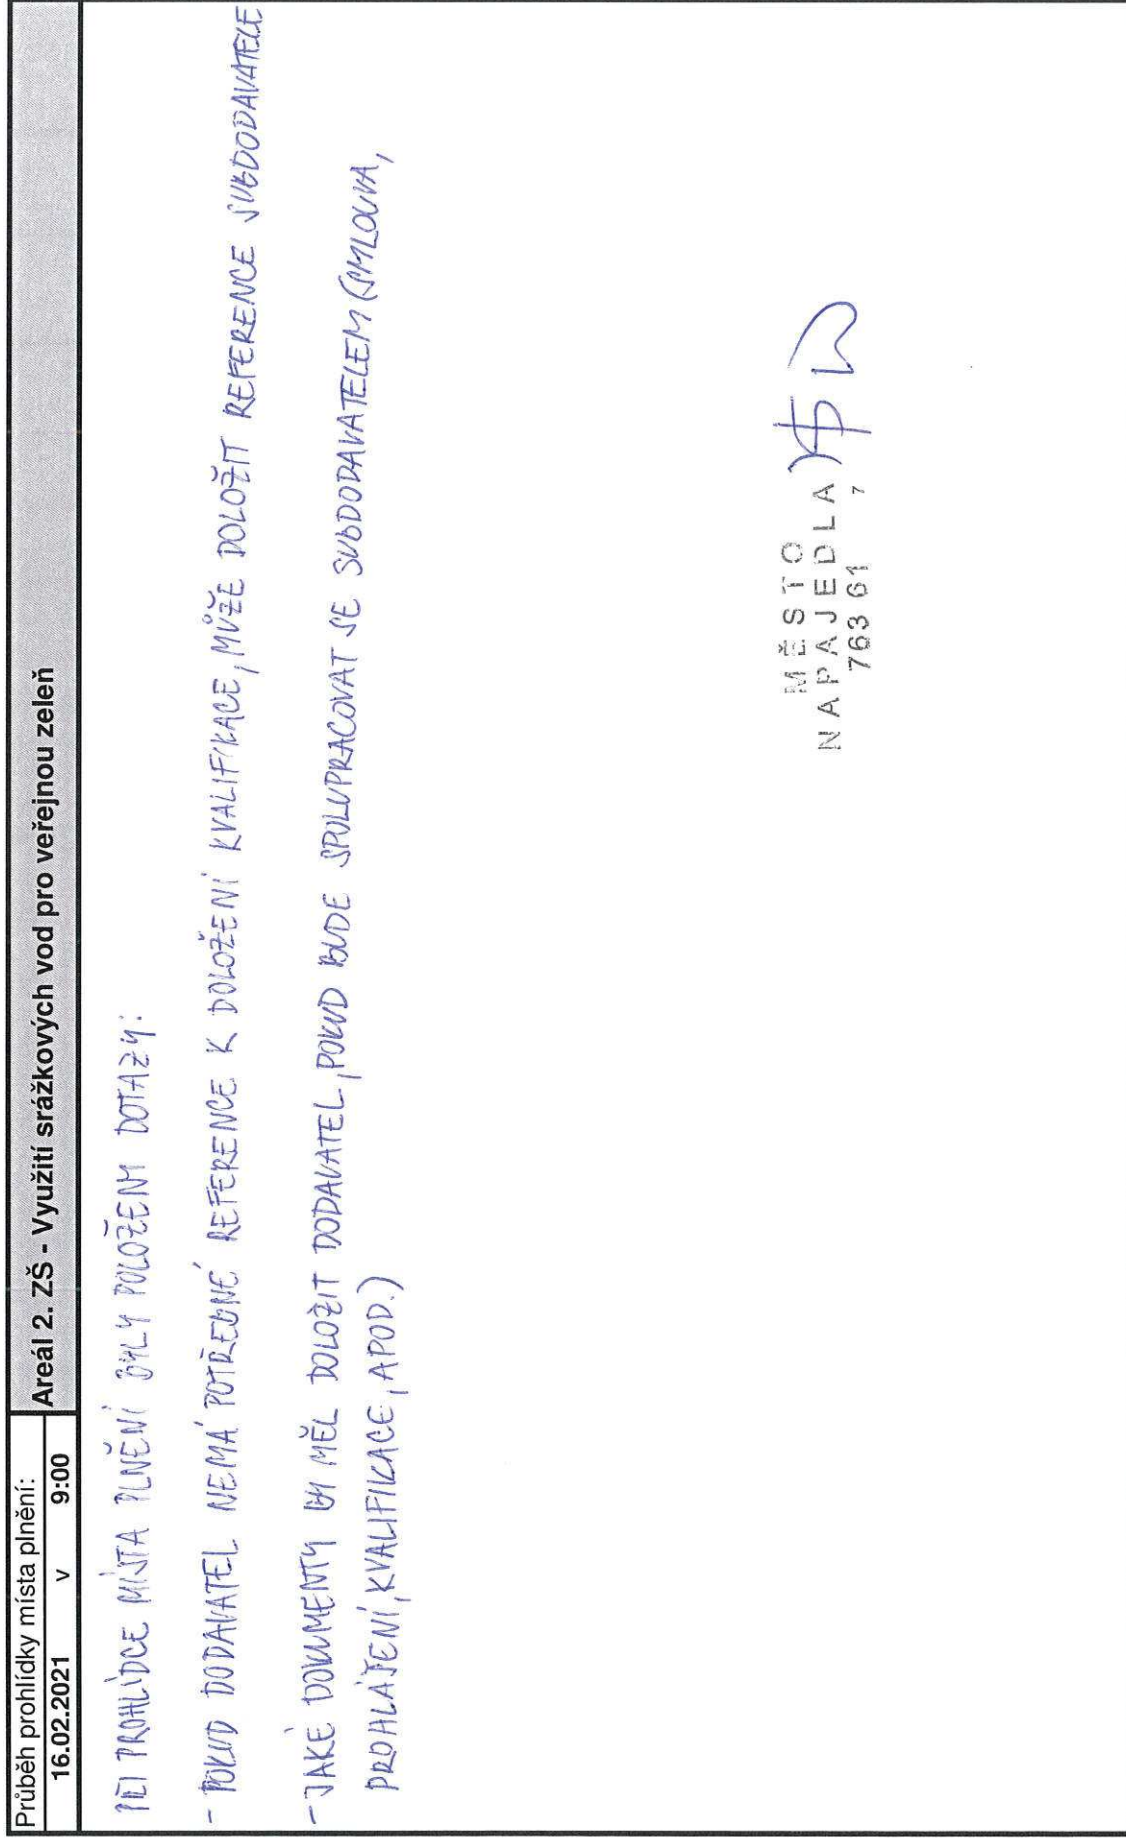 Průběh prohlídky místa plnění:
16.02.2021 v 9:00
Areál 2. ZŠ - Využití srážkových vod pro veřejnou zeleň
PŘI PROHLÍDCE MÍSTA PLNĚNÍ BYLY POLOŽENY DOTAZY:
- POKUD DODAVATEL NEMÁ POTŘEBNÉ REFERENCE K DOLOŽENÍ KVALIFIKACE, MŮŽE DOLOŽIT REFERENCE SUBDODAVATELE
- JAKÉ DOKUMENTY BY MĚL DOLOŽIT DODAVATEL, POKUD BUDE SPOLUPRACOVAT SE SUBDODAVATELEM (SMLOUVA,
PROHLÁŠENÍ, KVALIFIKACE, APOD.)
MĚSTO
NAPAJEDLA
763 61 7